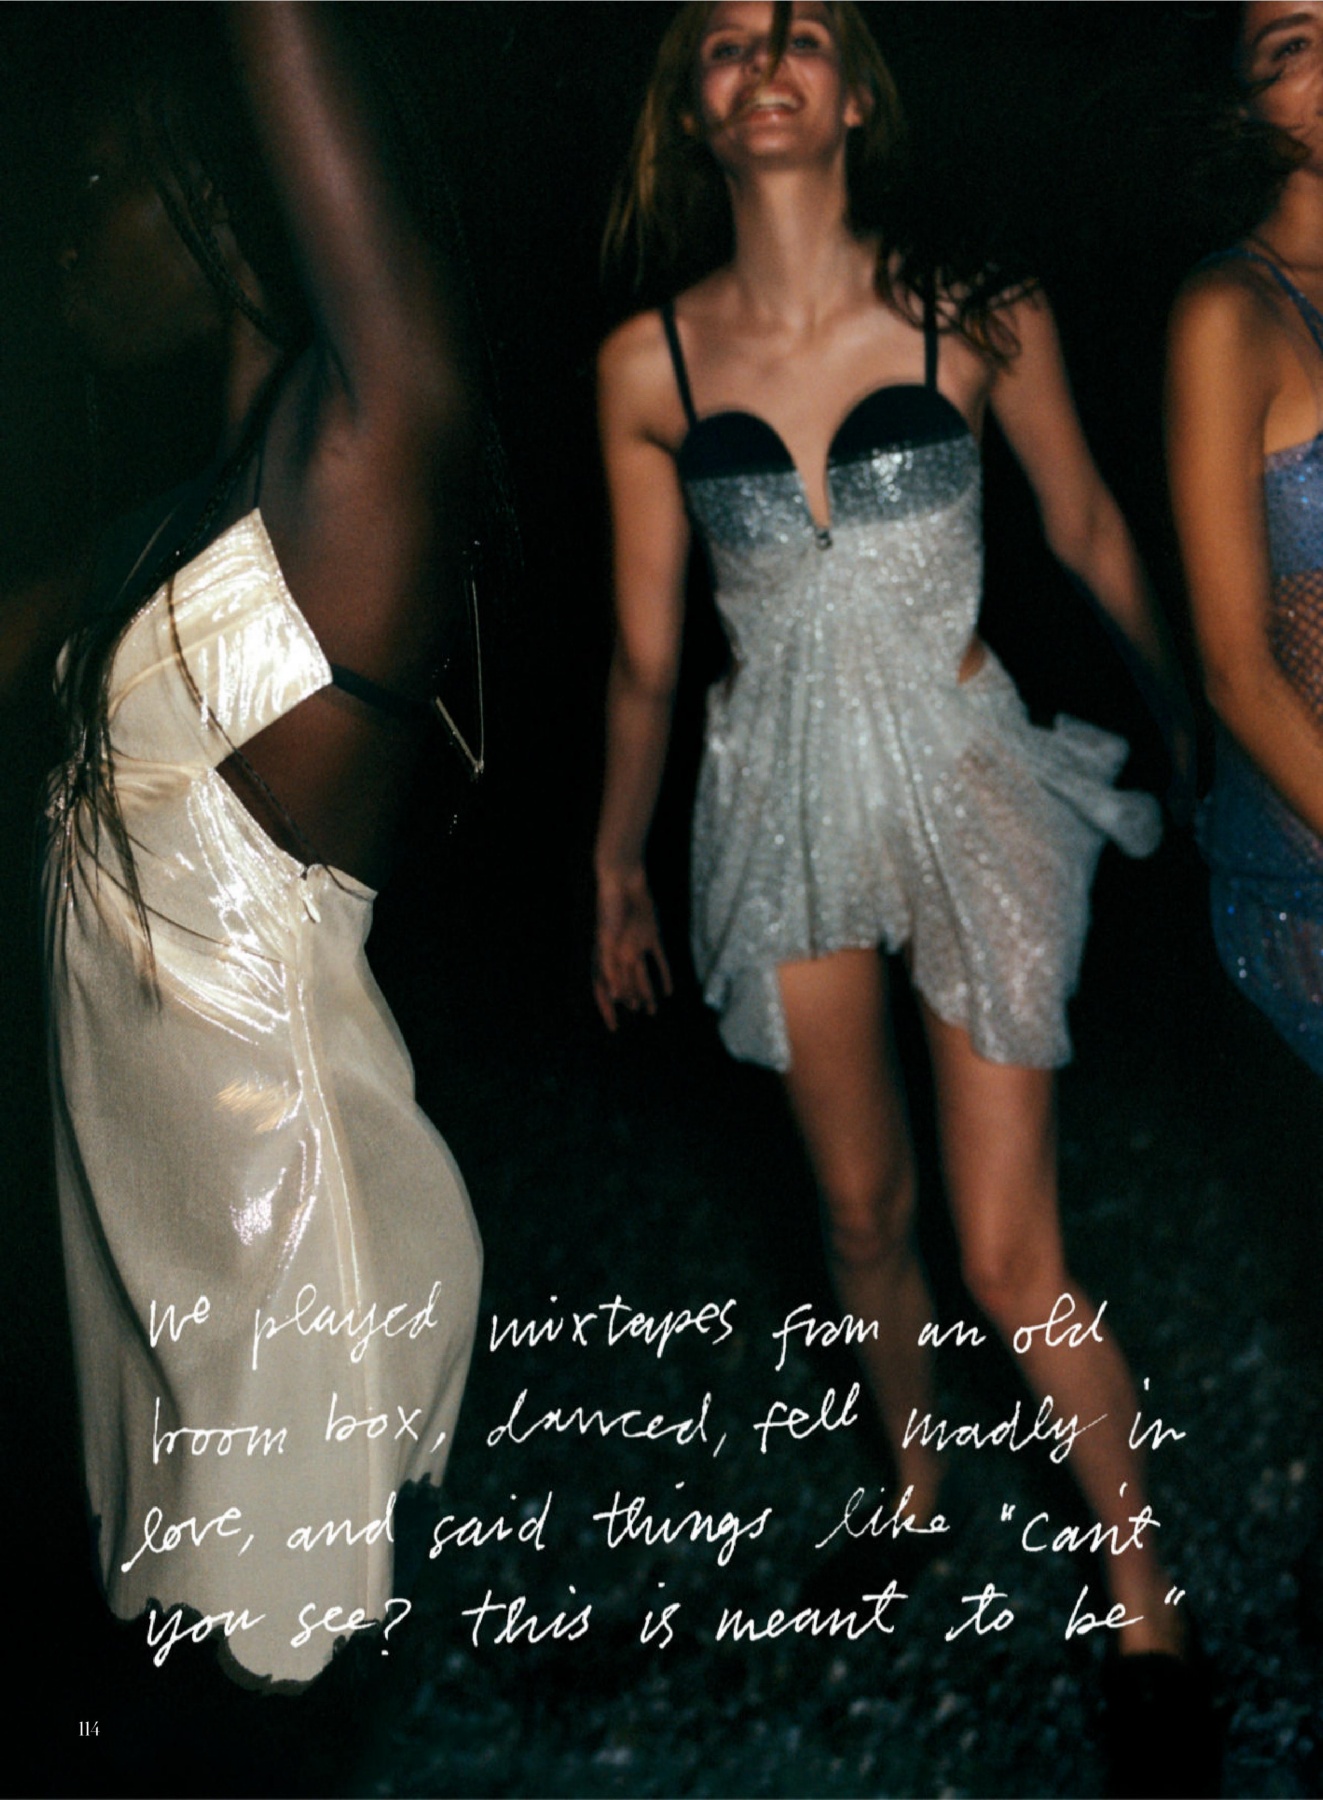 We played mixtapes from an old
boom box, danced, fell madly in
love, and said things like "can't
you see? this is meant to be"
114